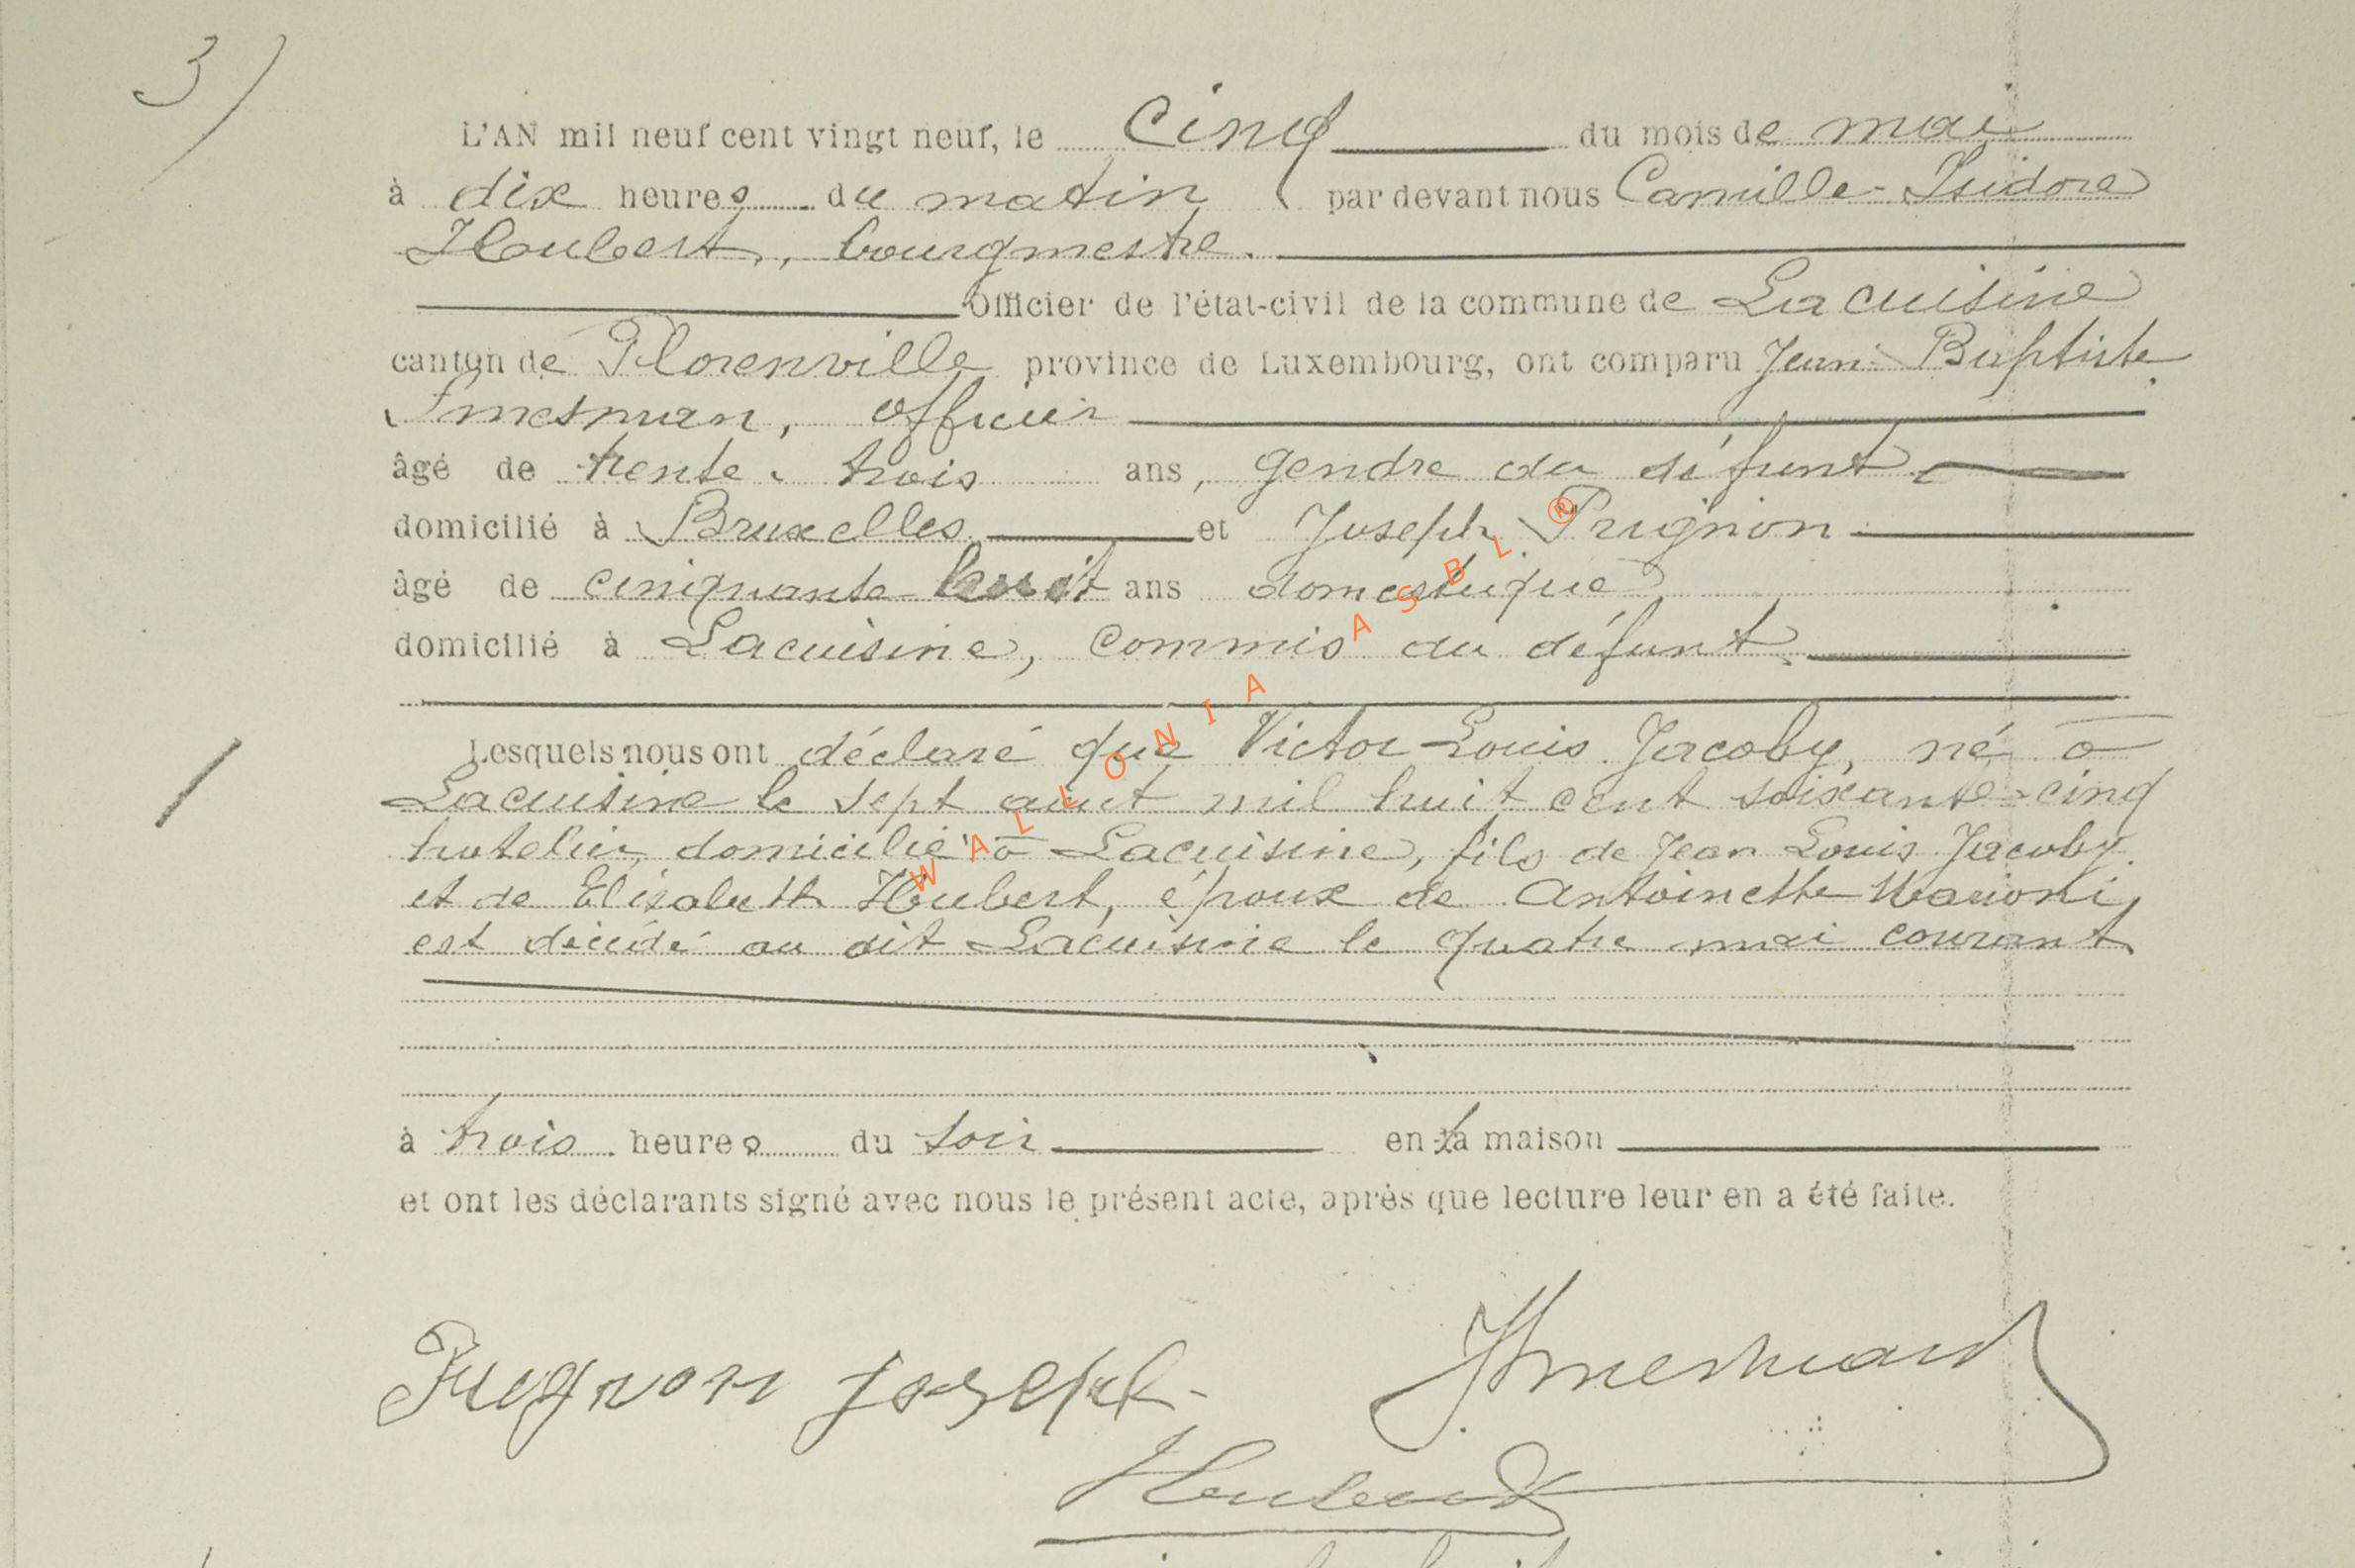 3)
L'AN mil neuf cent vingt neuf, le cinq du mois de mai
à dix heures du matin par devant nous Camille-Isidore
Houbert, bourgmestre.
Officier de l'état-civil de la commune de Lacuisine
canton de Florenville province de Luxembourg, ont comparu Jean-Baptiste
officier
âgé de trente-trois ans, gendre du défunt
domicilié à Bruxelles et Joseph Prignon
âgé de cinquante-huit ans domestique
domicilié à Lacuisine, commis du défunt.
Lesquels nous ont déclaré que Victor-Louis Jacoby, né à
Lacuisine le sept août mil huit cent soixante-cinq
hotelier, domicilié à Lacuisine, fils de Jean Louis Jacoby
et de Elisabeth Hubert, époux de Antoinette
est décédé au dit Lacuisine le quatre mai courant
à trois heures du soir en sa maison
et ont les déclarants signé avec nous le présent acte, après que lecture leur en a été faite.
Prignon Joseph
Houbert
WALLONIA ASBL ®